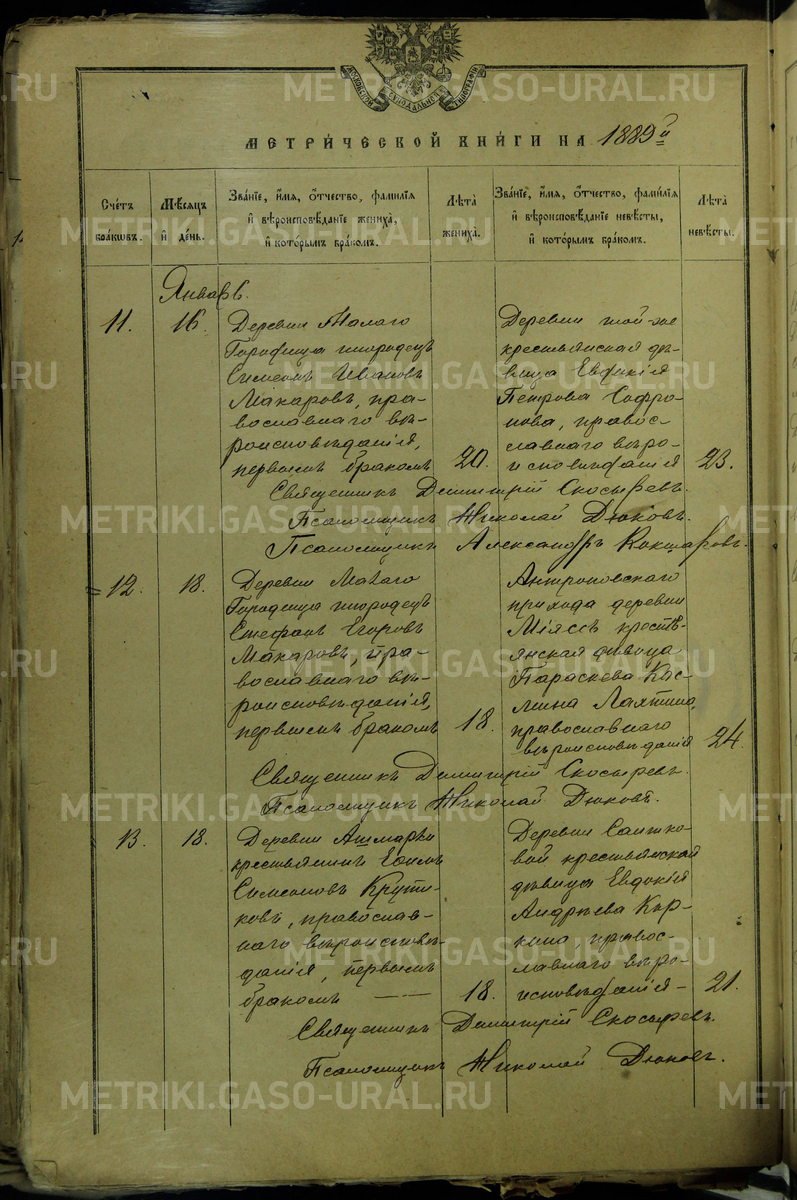 МОСКОВСКОЙ СѴНОДАЛЬНОЙ ТИПОГРАФІИ
МЕТРИ́ЧЕСКОЙ КНИ́ГИ НА 1889й
Сче́тъ
бра́ковъ.
Мѣ́сяцъ
и де́нь.
Зва́нїе, и́мя, о́тчество, фами́лїя
и вѣроисповѣ́данїе жениха́,
и кото́рымъ бра́комъ.
Лѣта̀
жениха̀.
Зва́нїе, и́мя, о́тчество, фами́лїя
и вѣроисповѣ́данїе невѣ́сты,
и кото́рымъ бра́комъ.
Лѣта̀
невѣ́сты.
Январь.
11. 16.
Деревни Малаго
Городища инородецъ
Симеонъ Ивановъ
Макаровъ, пра-
вославнаго вѣ-
роисповѣданія,
первымъ бракомъ 20.
Деревни той-же
крестьянская дѣ-
вица Евдокія
Петрова Софро-
нова, правос-
лавнаго вѣро-
исповѣданія 23.
Священникъ Димитрій Скосыревъ.
Псаломщикъ Николай Дюковъ.
Псаломщикъ Александръ Кокшаровъ.
12. 18.
Деревни Малаго
Городища инородецъ
Стефанъ Егоровъ
Макаровъ, пра-
вославнаго вѣ-
роисповѣданія,
первымъ бракомъ 18.
Антроповскаго
прихода деревни
Міясс крестья-
янская дѣвица
Параскева Кос-
мина Лаптина,
православнаго
вѣроисповѣданія 24.
Священникъ Димитрій Скосыревъ.
Псаломщикъ Николай Дюковъ.
13. 18.
Деревни Ашмарки
крестьянинъ
Симеоновъ Крути-
ковъ, православ-
наго вѣроисповѣ-
данія, первымъ
бракомъ — — 18.
Деревни
крестьянская
дѣвица Евдокія
Андреева Кор-
кина правос-
лавнаго вѣро-
исповѣданія - 21.
Священникъ Димитрій Скосыревъ.
Псаломщикъ Николай Дюковъ.
METRIKI.GASO-URAL.RU